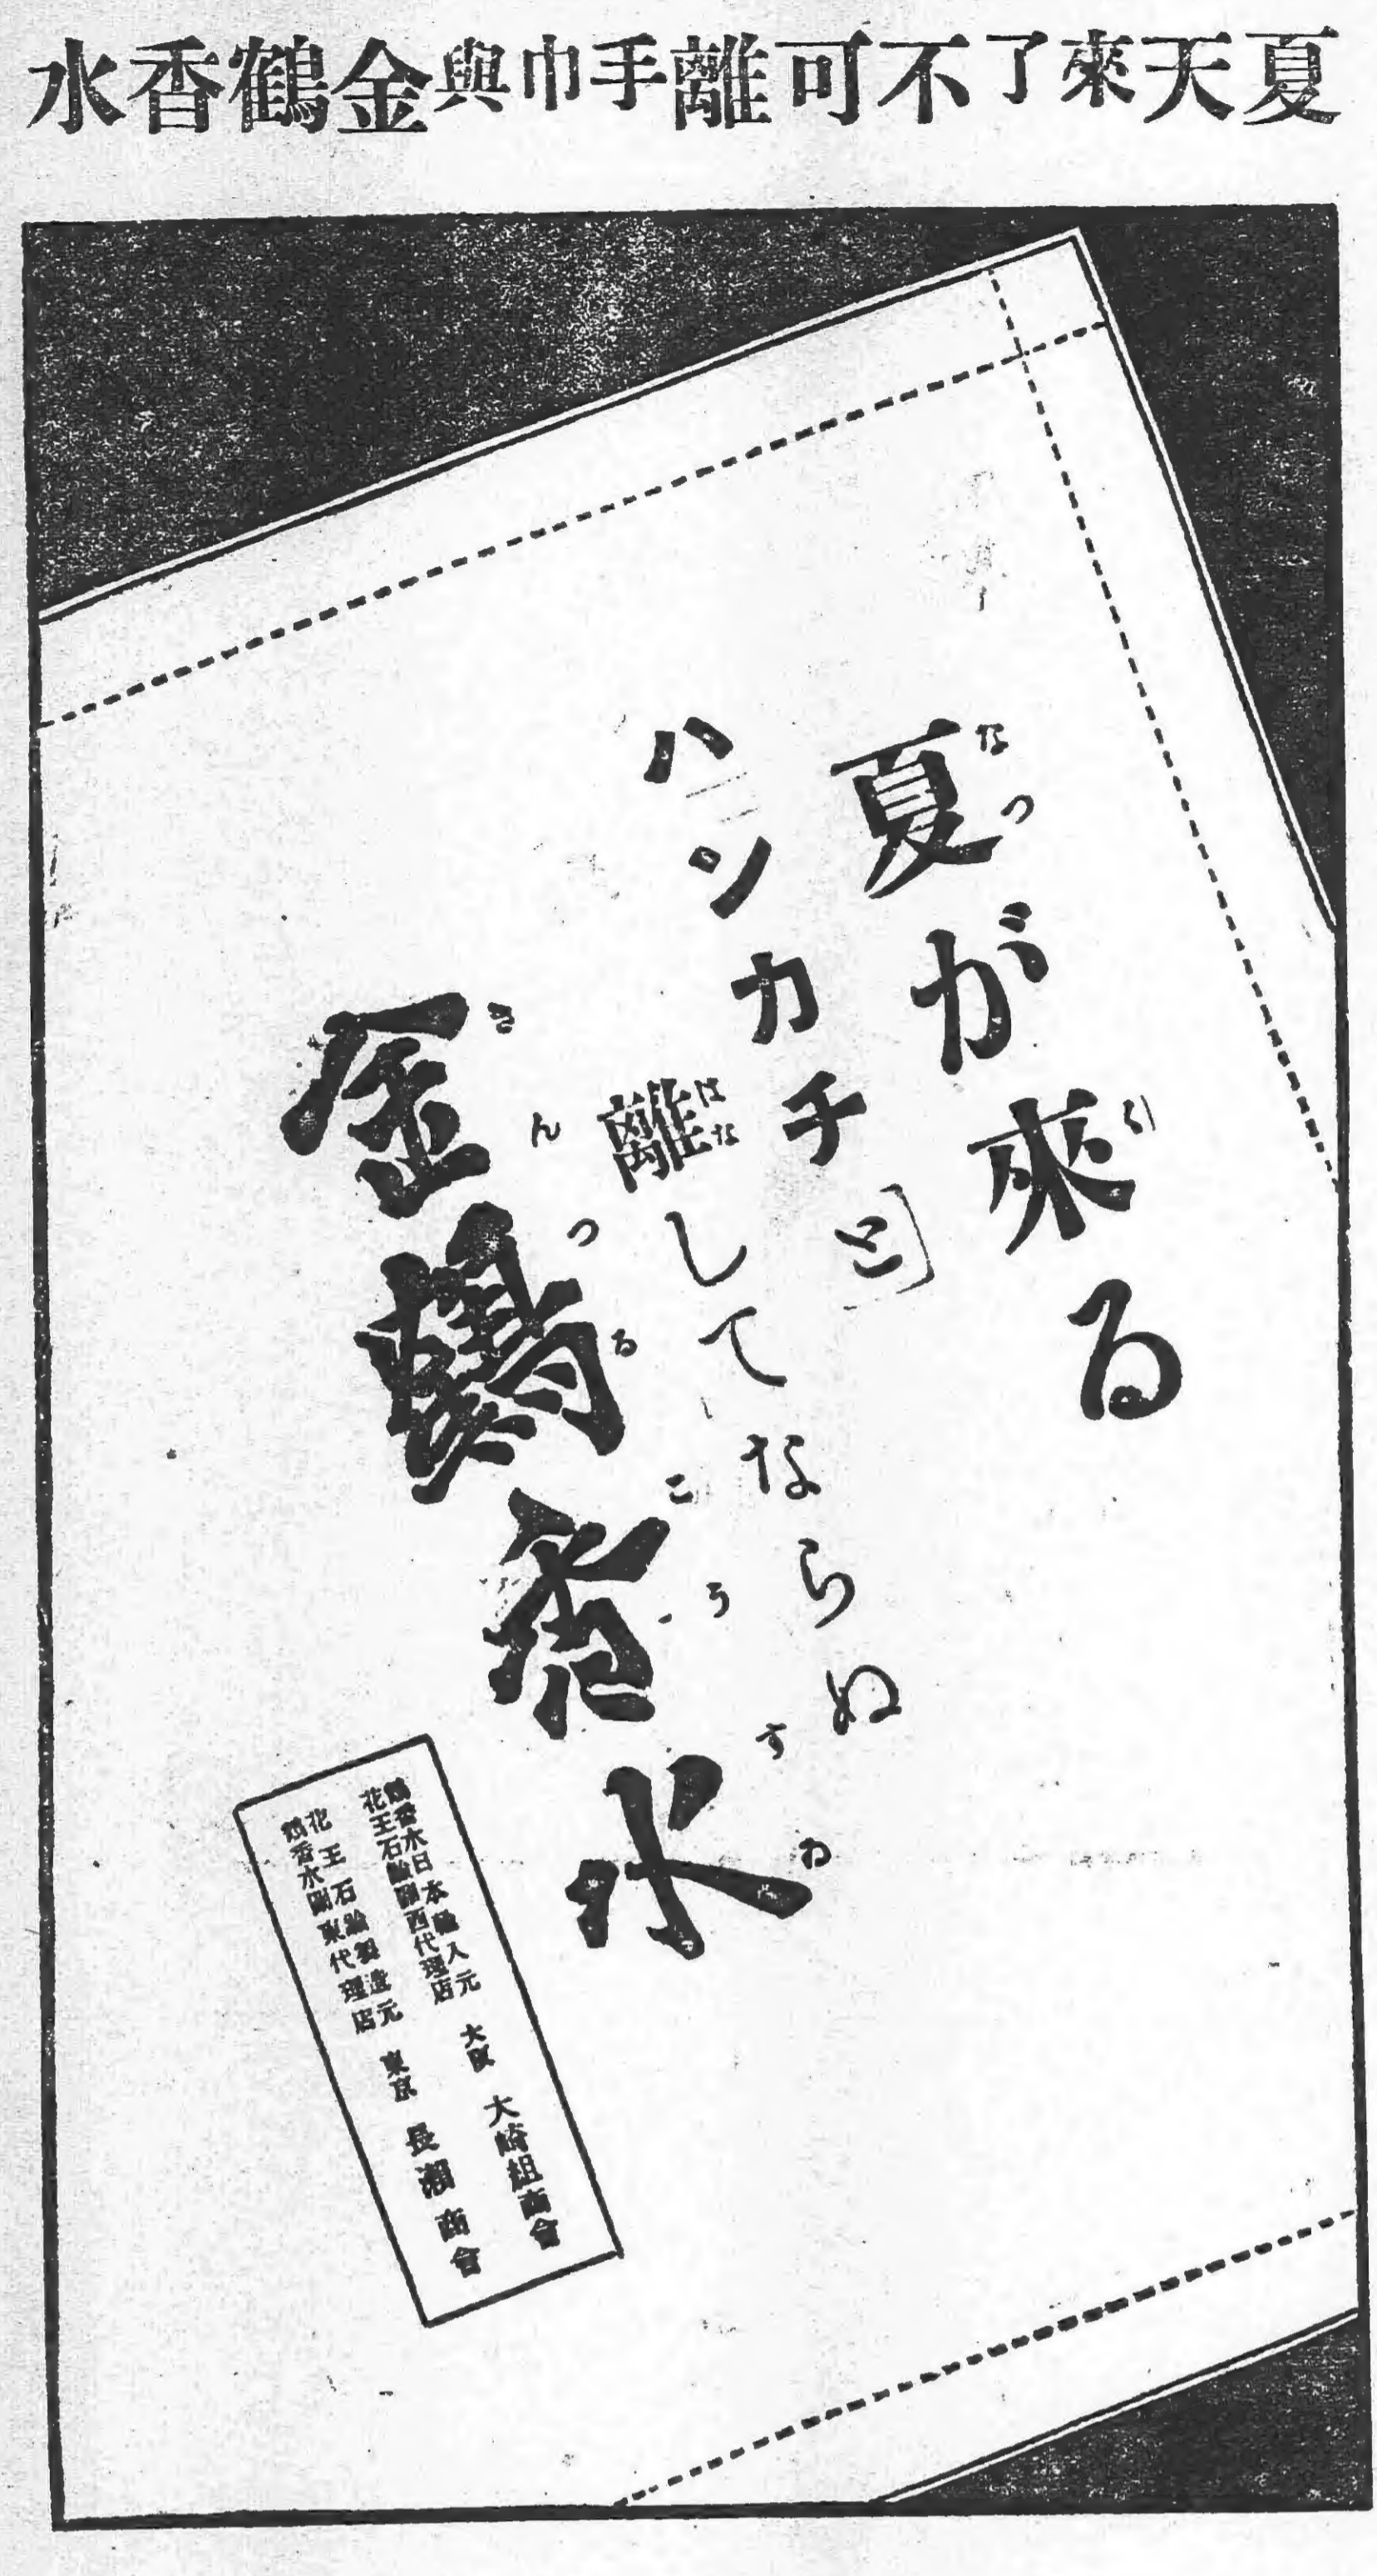 夏天來了不可離手巾與金鶴香水
夏が來る
なつ
く
ハンカチと
離してならぬ
はな
金鶴香水
きんつるこうすゐ
鶴香水日本輸入元
花王石鹼關西代理店
大阪 大崎組商會
花王石鹼製造元
鶴香水關東代理店
東京 長瀬商會